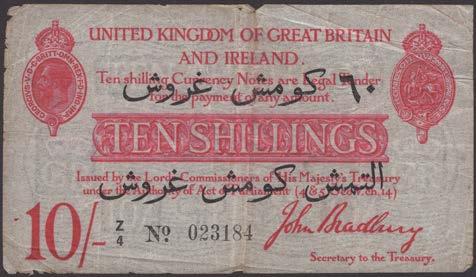 UNITED KINGDOM OF GREAT BRITAIN
AND IRELAND.
Ten shilling Currency Notes are Legal Tender
for the payment of any amount.
٦٠ كومش غروش
TEN SHILLINGS
Issued by the Lords Commissioners of His Majesty's Treasury
under the Authority of Act of Parliament (4 & 5 Geo. V, ch. 14)
التمش كومش غروش
10/-
Z/4 Nº 023184
John Bradbury
Secretary to the Treasury.